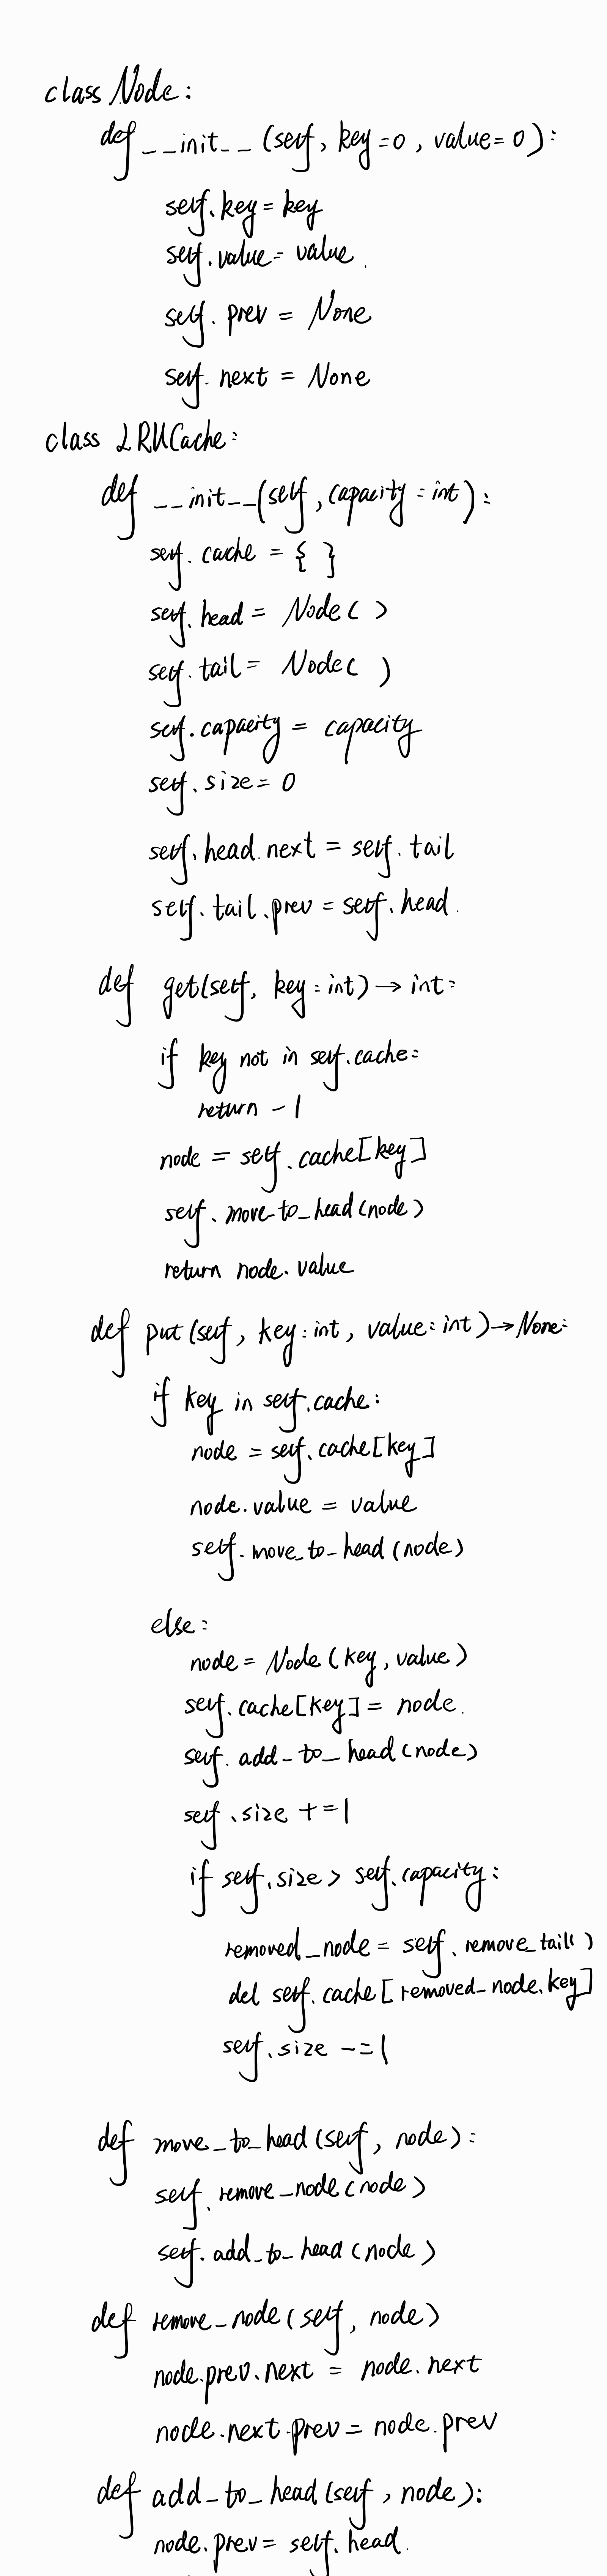 class Node:
def __init__ (self, key=0, value=0):
self.key=key
self.value=value.
self.prev = None
self.next = None
class LRUCache:
def __init__(self, capacity:int):
self.cache = { }
self.head = Node( )
self.tail = Node( )
self.capacity = capacity
self.size=0
self.head.next = self.tail
self.tail.prev = self.head.
def get(self, key:int)→int:
if key not in self.cache:
return -1
node = self.cache[key]
self.move_to_head(node)
return node.value
def put(self, key:int, value:int)→None:
if key in self.cache:
node = self.cache[key]
node.value = value
self.move_to_head(node)
else:
node = Node(key, value)
self.cache[key] = node.
self.add_to_head(node)
self.size +=1
if self.size > self.capacity:
removed_node = self.remove_tail()
del self.cache[removed_node.key]
self.size -=1
def move_to_head(self, node):
self.remove_node(node)
self.add_to_head(node)
def remove_node(self, node)
node.prev.next = node.next
node.next.prev = node.prev
def add_to_head(self, node):
node.prev = self.head.